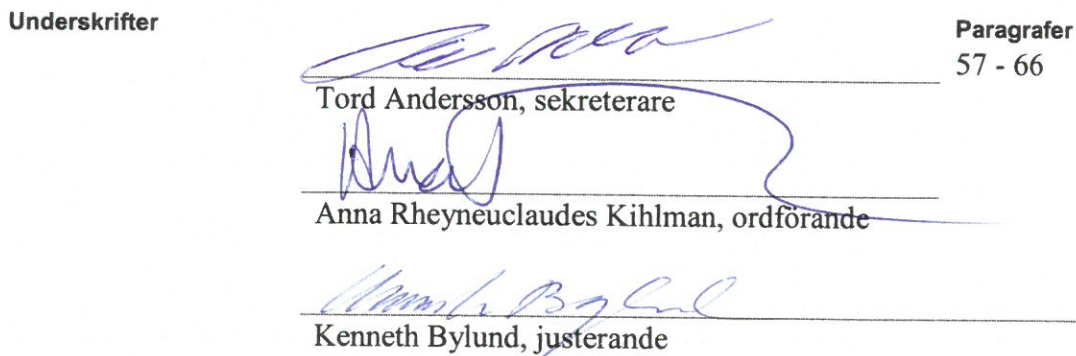 Underskrifter
Paragrafer
57 - 66
Tord Andersson, sekreterare
Anna Rheyneuclaudes Kihlman, ordförande
Kenneth Bylund, justerande